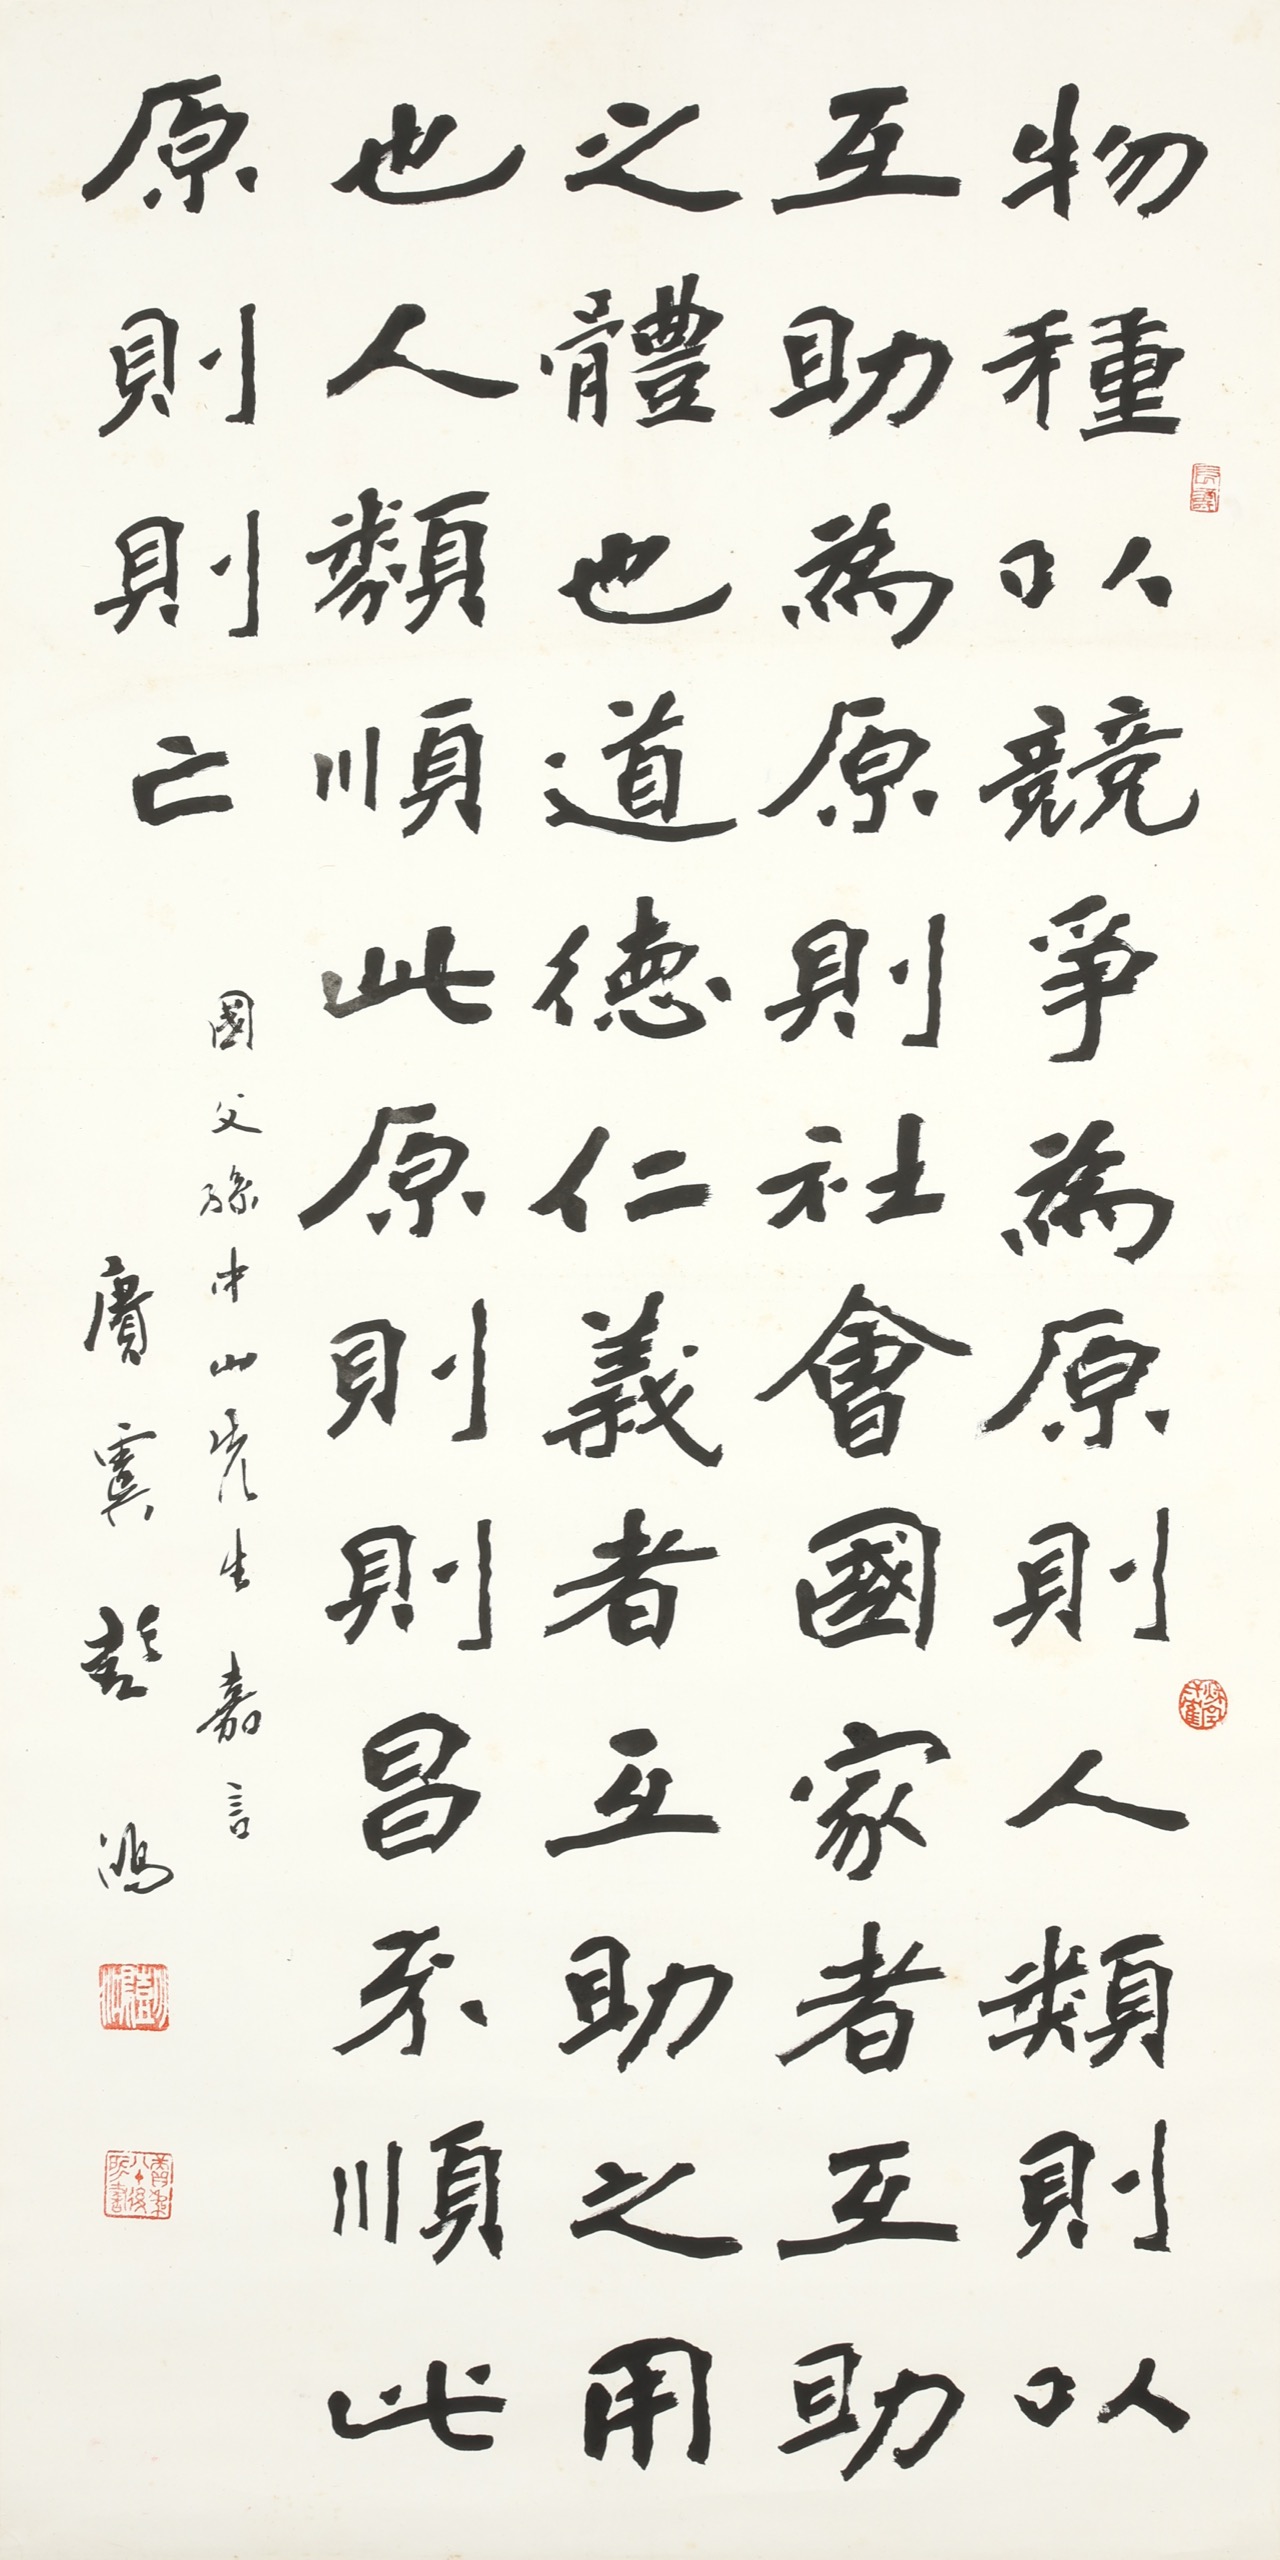 物種以競爭為原則人類則以
互助為原則社會國家者互助
之體也道德仁義者互助之用
也人類順此原則則昌不順此
原則則亡
國父孫中山先生嘉言
賡虞彭鴻
彭鴻